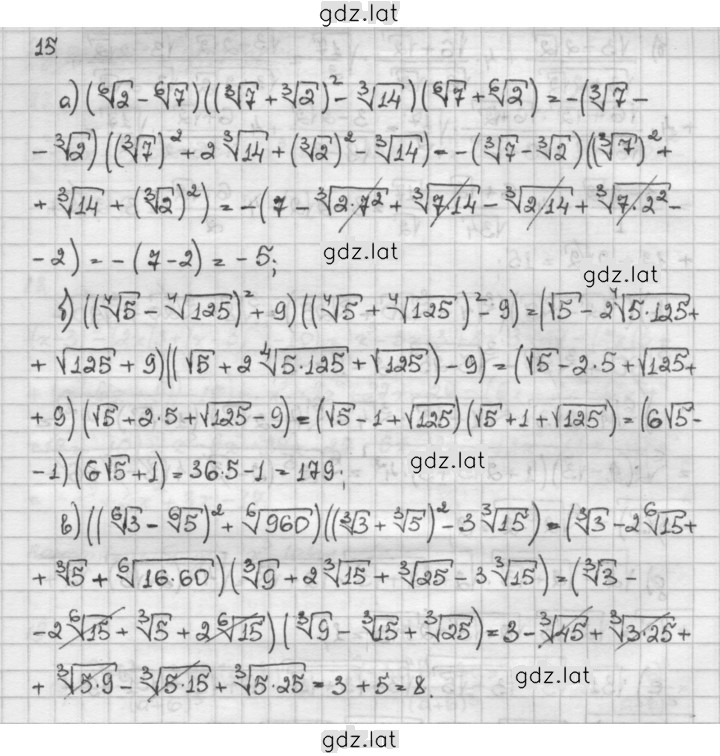 gdz.lat
15.
а) (⁶√2 - ⁶√7)((³√7 + ³√2)² - ³√14)(⁶√7 + ⁶√2) = -(³√7 -
- ³√2)((³√7)² + 2³√14 + (³√2)² - ³√14) = -(³√7 - ³√2)((³√7)² +
+ ³√14 + (³√2)²) = -(7 - ³√2·7² + ³√7·14 - ³√2·14 + ³√7·2² -
- 2) = -(7-2) = -5;
gdz.lat
gdz.lat
б) ((⁴√5 - ⁴√125)² + 9)((⁴√5 + ⁴√125)² - 9) = (√5 - 2⁴√5·125 +
+ √125 + 9)((√5 + 2⁴√5·125 + √125) - 9) = (√5 - 2·5 + √125 +
+ 9)(√5 + 2·5 + √125 - 9) = (√5 - 1 + √125)(√5 + 1 + √125) = (6√5 -
- 1)(6√5 + 1) = 36·5 - 1 = 179;
gdz.lat
в) ((⁶√3 - ⁶√5)² + ⁶√960)((³√3 + ³√5)² - 3³√15) = (³√3 - 2⁶√15 +
+ ³√5 + ⁶√16·60)(³√9 + 2³√15 + ³√25 - 3³√15) = (³√3 -
- 2⁶√15 + ³√5 + 2⁶√15)(³√9 - ³√15 + ³√25) = 3 - ³√45 + ³√3·25 +
+ ³√5·9 - ³√5·15 + ³√5·25 = 3 + 5 = 8.
gdz.lat
gdz.lat